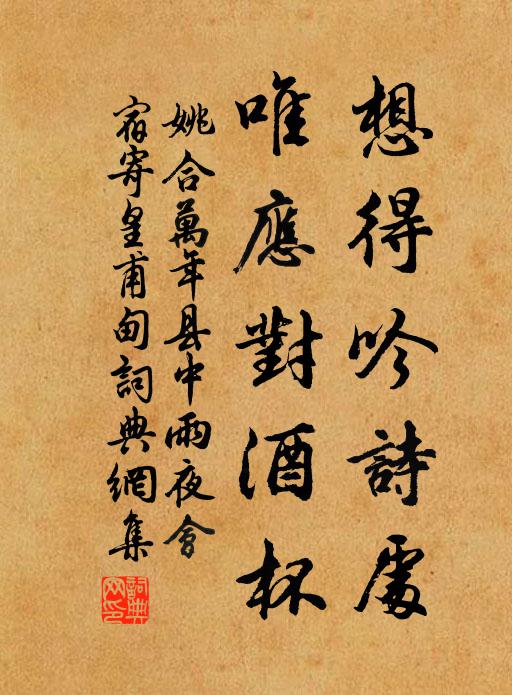 想得吟詩處
唯應對酒杯
姚合萬年县中雨夜會
宿寄皇甫甸詞典網集
詞典
网印